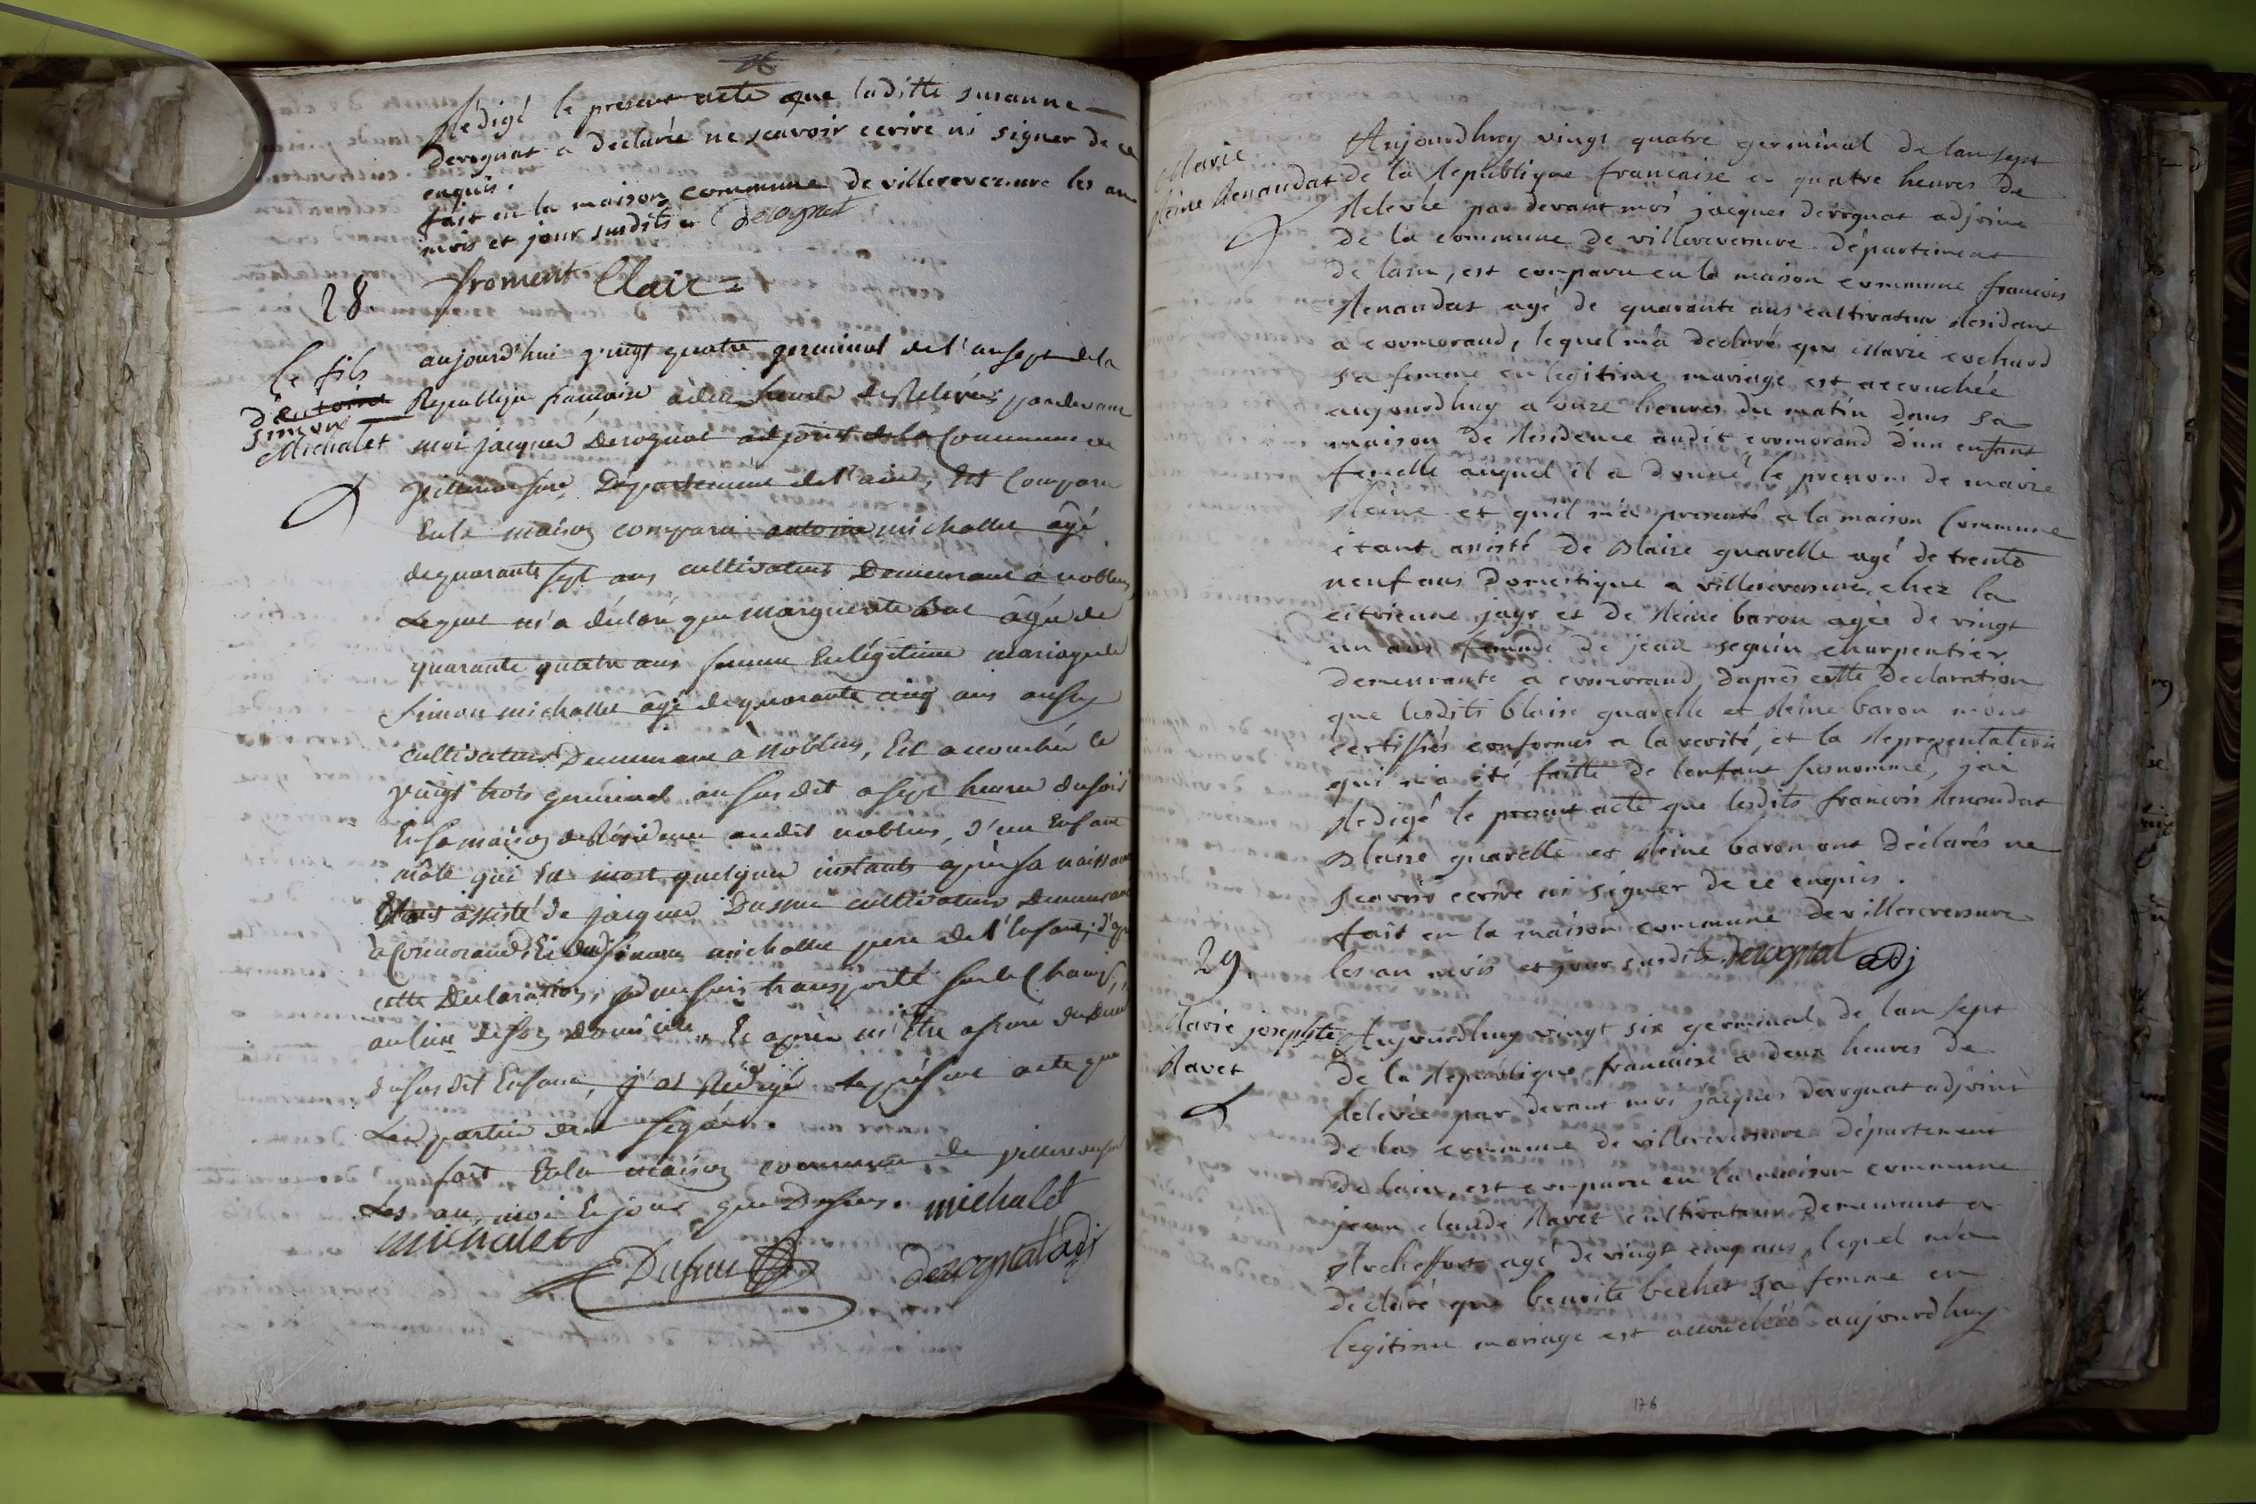 Rédigé le present acte que laditte susanne
derognat a declarée ne scavoir ecrire ni signer de ce
enquis.
fait en la maison commune de villereversure les an
mois et jour susdits Derognat
froment Clair
28.
Le fils
d'antoine
simon
Michalet
aujourd'hui vingt quatre germinal de l'an sept de la
Republique francaise à dix heures de Relevée pardevant
moi jacques Derognat adjoint de la Commune de
villereversure, Département de l'ain, Est Comparu
En la maison comparu antoine michallet âgé
de quarante sept ans cultivateur Demeurant à noblens
Lequel m'a déclaré que marguerite âgée de
quarante quatre ans femme En légitime mariage de
Simon michallet âgé de quarante cinq ans aussy
cultivateur Demeurant à noblens, Est accouchée le
vingt trois germinal an susdit a sept heures du soir
En sa maison de Résidence audit noblens, d'un Enfant
mâle qui Est mort quelques instants après sa naissance
Etant assisté de jacques Dufour cultivateur Demeurant
à Cormorand Et dud simon michallet pere de l'Enfant, d'après
cette Declaration, je me suis transporté sur le Champ,
au lieu de son domicile, Et après m'être assuré du Deces
du susdit Enfant, j'ai Rédigé le présent acte que
Les parties ont signés.
fait En la maison commune de villereversure
Les an, mois Et jour que Dessus. michalet
michalet
Dufour derognat adj
Marie
Reine Renandat
Aujourdhuy vingt quatre germinal de lan sept
de la Republique francaise a quatre heures de
Relevée par devant moi jacques derognat adjoint
de la commune de villereversure département
de lain, est comparu en la maison commune francois
Renandat agé de quarante ans cultivateur Résidant
a cormorand, lequel m'a déclaré que Marie cochard
sa femme en legitime mariage est accouchée
aujourdhuy a onze heures du matin dans sa
maison de Résidence audit cormorand d'un enfant
femelle auquel il a donné le prenom de marie
Reine et quil m'a presenté a la maison Commune
étant assisté de Blaise guarelle agé de trente
neuf ans domestique a villereversure chez la
citoienne jayr et de Reine baron agée de vingt
un ans femme de jean seguin charpentier
demeurante a cormorand, daprès cette Déclaration
que lesdits blaise guarelle et Reine baron mont
certiffiés conformes a la verité, et la Representation
qui m'a été faitte de lenfant susnommé, jai
Redigé le present acte que lesdits francois Renandat
Blaise guarelle et Reine baron ont déclarés ne
scavoir ecrire ni signer de ce enquis.
fait en la maison commune de villereversure
les an mois et jour susdits derognat adj
29.
Marie josephte
Ravet
Aujourdhuy vingt six germinal de lan sept
de la Republique francaise a deux heures de
Relevée par devant moi jacques derognat adjoint
de la commune de villereversure département
de lain, est comparu en la maison commune
jean claude Ravet cultivateur demeurant a
Rocheffort agé de vingt cinq ans, lequel m'a
déclaré que benoite bechet sa femme en
legitime mariage est accouchée aujourdhuy
176